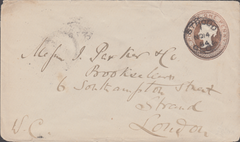 Messrs J. Parker & Co.
Booksellers
6 Southampton Street
Strand
London
W.C.